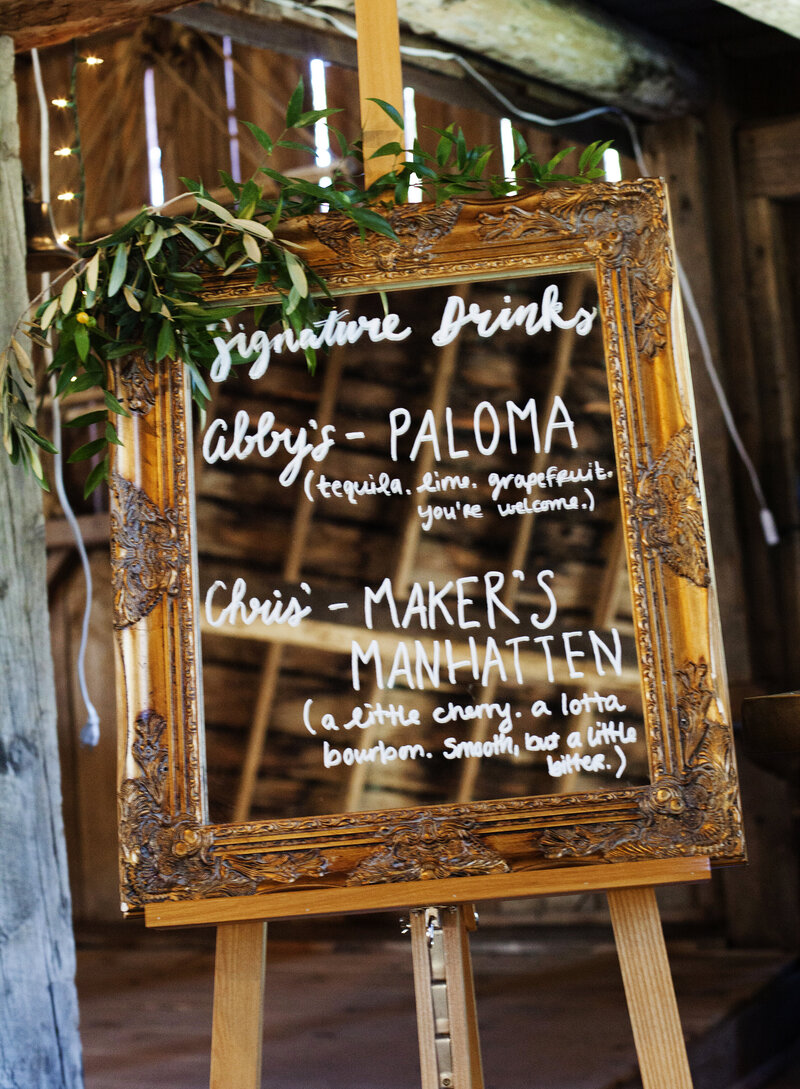 Signature Drinks
Abby's - PALOMA
(tequila. lime. grapefruit.
you're welcome.)
Chris' - MAKER'S
MANHATTEN
(a little cherry. a lotta
bourbon. Smooth, but a little
bitter.)